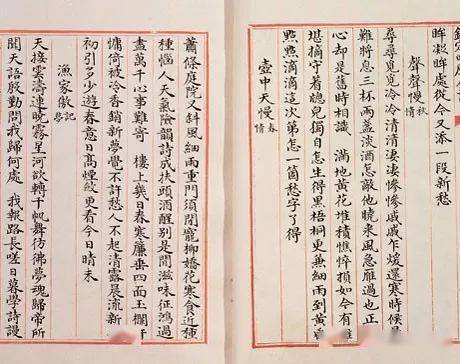 眸凝眸處從今又添一段新愁
聲聲慢 秋情
尋尋覓覓冷冷清清淒淒慘慘戚戚乍煖還寒時候
難將息三杯兩盞淡酒怎敵他曉來風急雁過也正
心却是舊時相識 滿地黃花堆積憔悴損如今有
堪摘守着牎兒獨自怎生得黑梧桐更兼細雨到黃
點點滴滴這次第怎一箇愁字了得
壺中天慢 春情
蕭條庭院又斜風細雨重門須閉寵柳嬌花寒食近種
種惱人天氣險韻詩成扶頭酒醒别是閒滋味征鴻過
盡萬千心事難寄 樓上幾日春寒簾垂四面玉欄干
慵倚被冷香銷新夢覺不許愁人不起清露晨流新
初引多少遊春意日高煙斂更看今日晴未
漁家傲 記夢
天接雲濤連曉霧星河欲轉千帆舞彷彿夢魂歸帝所
聞天語殷勤問我歸何處 我報路長嗟日暮學詩謾